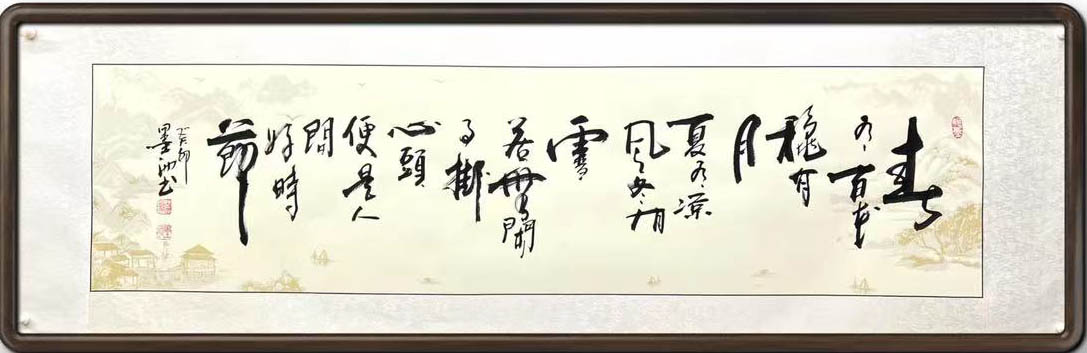 春
有百花
秋有
月
夏有凉
风冬有
雪
若無閑
事掛
心頭
便是人
間
好時
節
癸卯
墨书